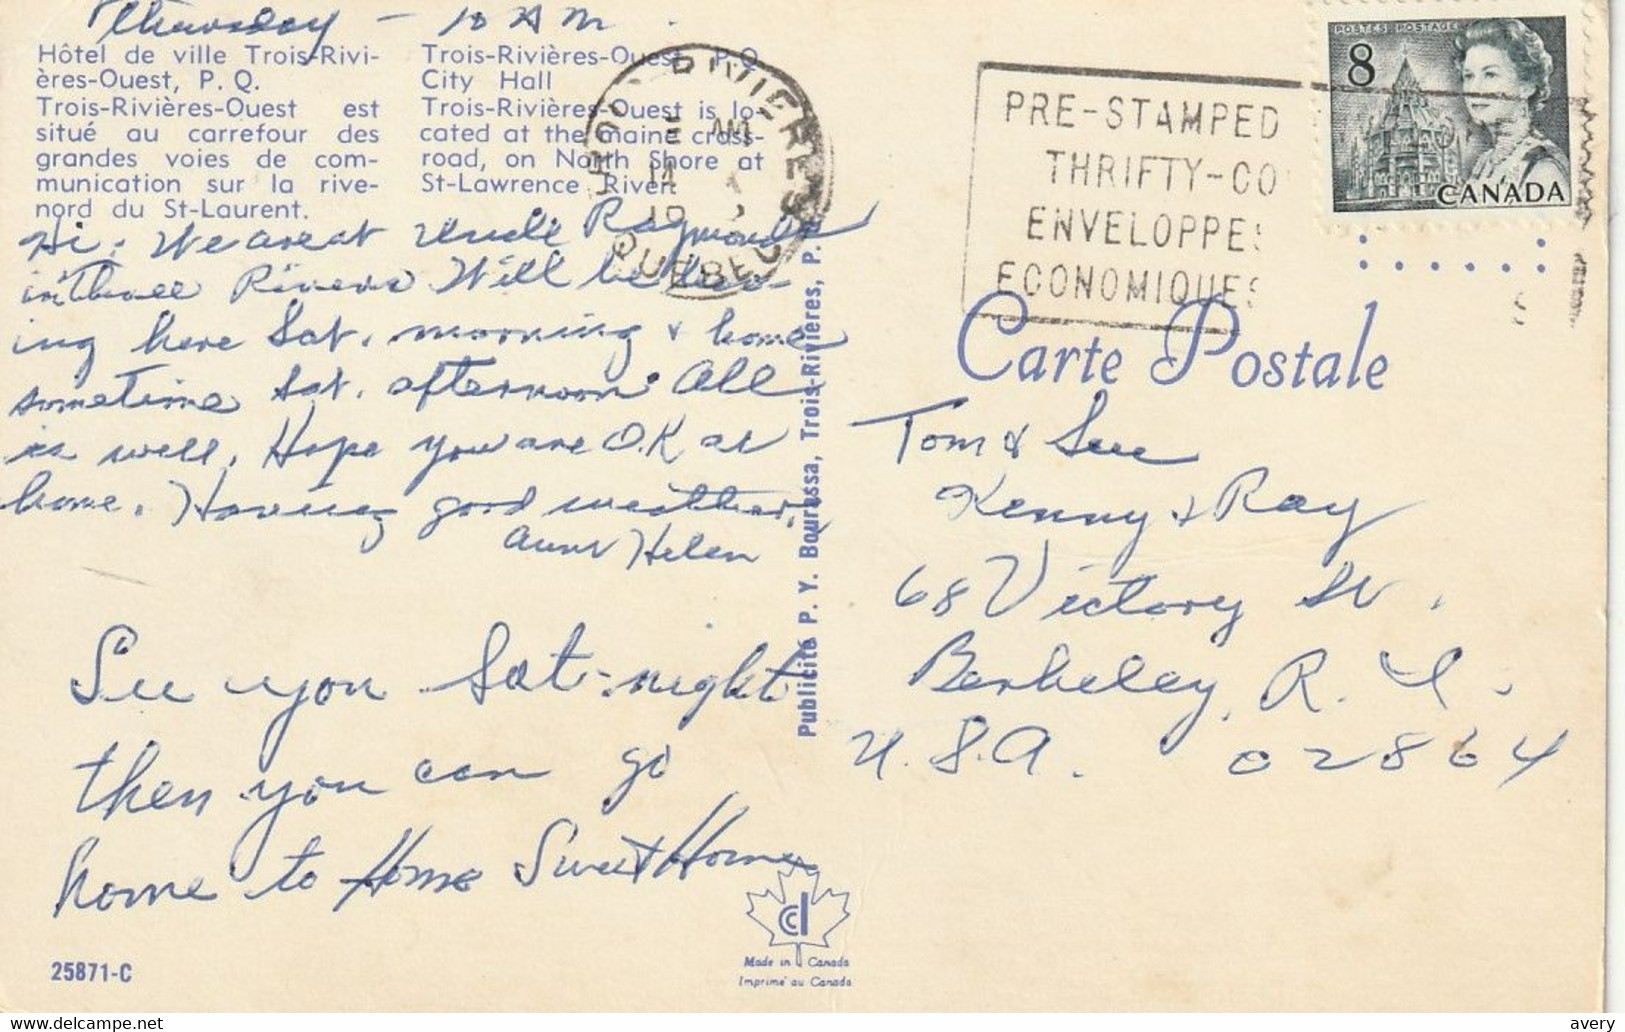 Thursday - 10 AM.
Hôtel de ville Trois-Rivi-
ères-Ouest, P. Q.
Trois-Rivières-Ouest est
situé au carrefour des
grandes voies de com-
munication sur la rive-
nord du St-Laurent.
Trois-Rivières-Ouest, P. Q.
City Hall
Trois-Rivières-Ouest is lo-
cated at the maine cross-
road, on North Shore at
St-Lawrence River.
Hi: We are at Uncle Raymonds
in three Rivers Will be leav-
ing here Sat. morning & home
sometime Sat. afternoon. All
is well. Hope you are O.K at
home. Having good weather.
Aunt Helen
See you Sat-night
then you can go
home to Home Sweet Home
25871-C
Publicité P. Y. Bourassa, Trois-Rivières, P.
Made in Canada
Imprimé au Canada
RIVIERES
QUEBEC
AM
PRE-STAMPED
THRIFTY-CO
ENVELOPPES
ECONOMIQUES
POSTES POSTAGE
8
CANADA
Carte Postale
Tom & Sue
Kenny & Ray
68 Victory St.
Berkeley, R. I.
U.S.A. 02864
delcampe.net
avery